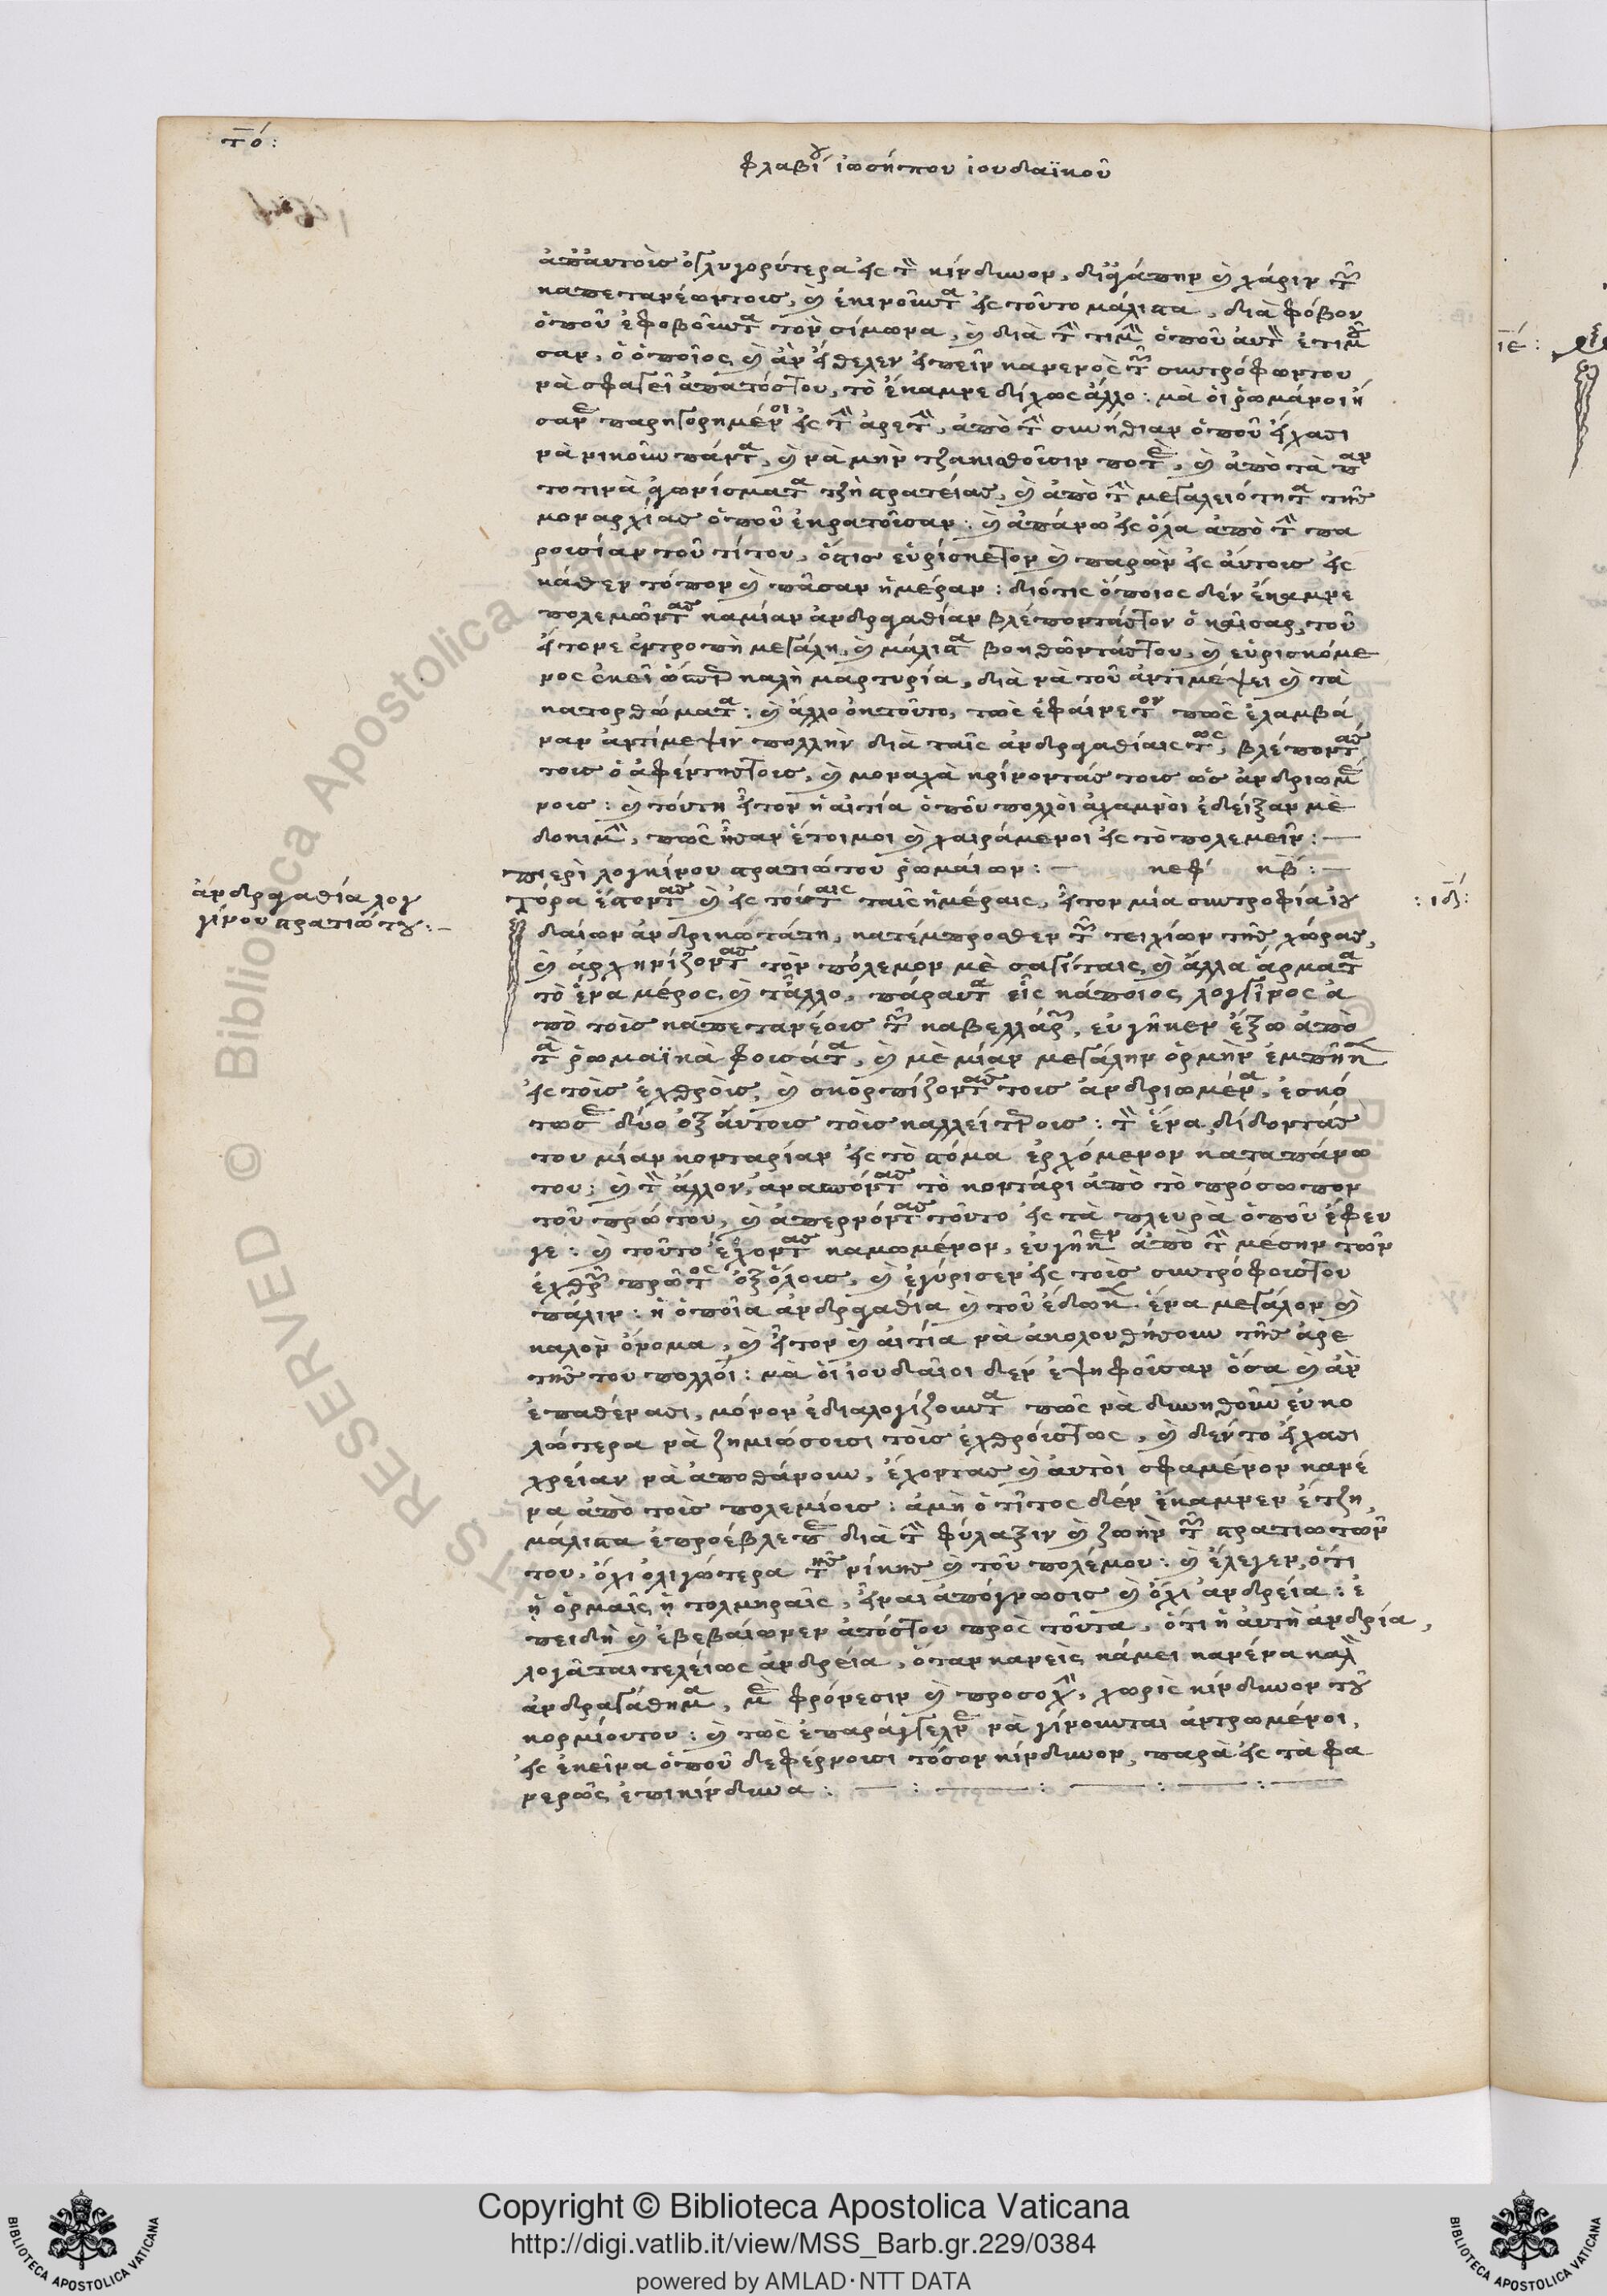 το:
φλαβίου ἰωσήπου ἰουδαϊκοῦ
ἀπ' αὐτοὺς ὀγλυγορύτερα εἰς τὸν κίνδυνον, δι' ἀγάπην καὶ χάριν τῶν
καπετανέων τους, καὶ ἐκινοῦντα εἰς τοῦτο μάλιστα, διὰ φόβον
ὁποῦ ἐφοβοῦντα τὸν σίμωνα, καὶ διὰ τὴν τιμὴν ὁποῦ αὐτὸν ἐτιμοῦ
σαν, ὁ ὁποῖος καὶ ἂν ἤθελεν εἰπεῖν κανενὸς τῶν συντρόφων του
νὰ σφαγεῖ ἀπατός του, τὸ ἔκαμνε δίχως ἄλλο: μὰ οἱ ῥωμάνοι ἦ
σανε παρηγορημένοι εἰς τὴν ἀρετὴν, ἀπὸ τὴν συνήθιαν ὁποῦ εἴχασι
νὰ νικοῦν πάντα, καὶ νὰ μὴν τζακισθοῦσιν ποτὲ, καὶ ἀπὸ τὰ παν
τοτινὰ γνωρίσματα τζὴ στρατείας, καὶ ἀπὸ τὴν μεγαλειότητα τῆς
μοναρχίας ὁποῦ ἐκρατοῦσαν: καὶ ἀπάνω εἰς ὅλα ἀπὸ τὴν πα
ρουσίαν τοῦ τίτου, ὅστις εὑρίσκετον καὶ παρὼν εἰς αὐτοὺς εἰς
κάθεν τόπον καὶ πᾶσαν ἡμέραν: διότις ὅποιος δὲν ἔκαμνε
πολεμῶντας καμίαν ἀνδραγαθίαν βλέποντάς τον ὁ καῖσαρ, τοῦ
ἤτονε ἐντροπὴ μεγάλη, καὶ μάλιστα βοηθῶντάς του, καὶ εὑρισκόμε
νος ἐκεῖ καλὴ μαρτυρία, διὰ νὰ τοῦ ἀντιμέψει καὶ τὰ
κατορθώματα: καὶ ἄλλο ἐκ τοῦτο, πὼς ἐφαίνετον πῶς ἐλαμβά
ναν ἀντίμεψιν πολλὴν διὰ ταῖς ἀνδραγαθίαις τως, βλέποντάς
τους ὁ ἀφέντης τους, καὶ μοναχὰ κρίνοντάς τους ὡς ἀνδριωμέ
νους: καὶ τούτη ἦτον ἡ αἰτία ὁποῦ πολλοὶ ἀχαμνοὶ ἐδείξαν μὲ
δοκιμὴν, πῶς ἦσαν ἕτοιμοι καὶ χαιράμενοι εἰς τὸ πολεμεῖν:—
περὶ λογκίνου στρατιώτου ῥωμαίων:— κεφ κβ:—
ἀνδραγαθία λογ
γίνου στρατιώτου:—
Τώρα ἔστοντας καὶ εἰς τούταις ταῖς ἡμέραις, ἦτον μία συντροφία ἰου
:ιδ:
δαίων ἀνδρικωτάτη, κατέμπροσθεν τῶν τειχίων τῆς χώρας,
καὶ ἀρχηνίζοντας τὸν πόλεμον μὲ σαγίταις, καὶ ἄλλα ἄρματα
τὸ ἕνα μέρος, καὶ τἄλλο, πάραυτα εἷς κάποιος λογγῖνος ἀ
πὸ τοὺς καπετανέους τῶν καβελλάρων, εὐγῆκεν ἔξω ἀπὸ
τὰ ῥωμαϊκὰ φουσάτα, καὶ μὲ μίαν μεγάλην ὁρμὴν ἐμπῆκε
εἰς τοὺς ἐχθροὺς, καὶ σκορπίζοντάς τους ἀνδριωμένα, ἐσκό
τωσε δύο ἐξ αὐτοὺς τοὺς καλλείτερους: τὸν ἕνα, δίδοντάς
του μίαν κονταρίαν εἰς τὸ στόμα ἐρχόμενον καταπάνω
του: καὶ τὸν ἄλλον, ἀνασπόντας τὸ κοντάρι ἀπὸ τὸ πρόσωπον
τοῦ πρώτου, καὶ ἀπερνόντας τοῦτο εἰς τὰ πλευρὰ ὁποῦ ἔφευ
γε: καὶ τοῦτο ἔχοντας καμωμένον, εὐγῆκεν ἀπὸ τὴν μέσην τῶν
ἐχθρῶν πρῶτος ἐξ ὅλους, καὶ ἐγύρισεν εἰς τοὺς συντρόφους του
πάλιν: ἡ ὁποῖα ἀνδραγαθία καὶ τοῦ ἔδωκε ἕνα μεγάλον καὶ
καλὸν ὄνομα, καὶ ἦτον καὶ αἰτία νὰ ἀκολουθήσουν τῆς ἀρε
τῆς του πολλοί: μὰ οἱ ἰουδαῖοι δὲν ἐψηφοῦσαν ὅσα καὶ ἂν
ἐπαθέναςι, μόνον ἐδιαλογίζουντα πῶς νὰ δυνηθοῦν εὐκο
λώτερα νὰ ζημιώσουσι τοὺς ἐχθρούς τως, καὶ δὲν τὸ εἴχασι
χρείαν νὰ ἀποθάνουν, ἔχοντας καὶ αὐτοὶ σφαμένον κανέ
να ἀπὸ τοὺς πολεμίους: ἀμὴ ὁ τίτος δὲν ἔκαμνεν ἔτζη,
μάλιστα ἐπροέβλεπε διὰ τὴν φύλαξιν καὶ ζωὴν τῶν στρατιωτῶν
του, ὄχι ὀλιγώτερα τῆς νίκης καὶ τοῦ πολέμου: καὶ ἔλεγεν, ὅτι
ἡ ὁρμαῖς ἡ τολμηραῖς, εἶναι ἀπόγνωσις καὶ ὄχι ἀνδρεία: ἐ
πειδὴ καὶ ἐβεβαίωνεν ἀπός του πρὸς τοῦτα, ὅτι ἡ αὐτὴ ἀνδρία,
λογᾶται τελείως ἀνδρεία, ὅταν κανεὶς κάμει κανένα καλὸν
ἀνδραγάθημα, μὲ φρόνεσιν καὶ προσοχὴν, χωρὶς κίνδυνον τοῦ
κορμίου του: καὶ τὼς ἐπαράγγελνε νὰ γίνουνται ἀντρωμένοι,
εἰς ἐκεῖνα ὁποῦ δὲ φέρνουσι τόσον κίνδυνον, παρὰ εἰς τὰ φα
νερῶς ἐπικίνδυνα:
ιε:
Copyright © Biblioteca Apostolica Vaticana
http://digi.vatlib.it/view/MSS_Barb.gr.229/0384
powered by AMLAD·NTT DATA